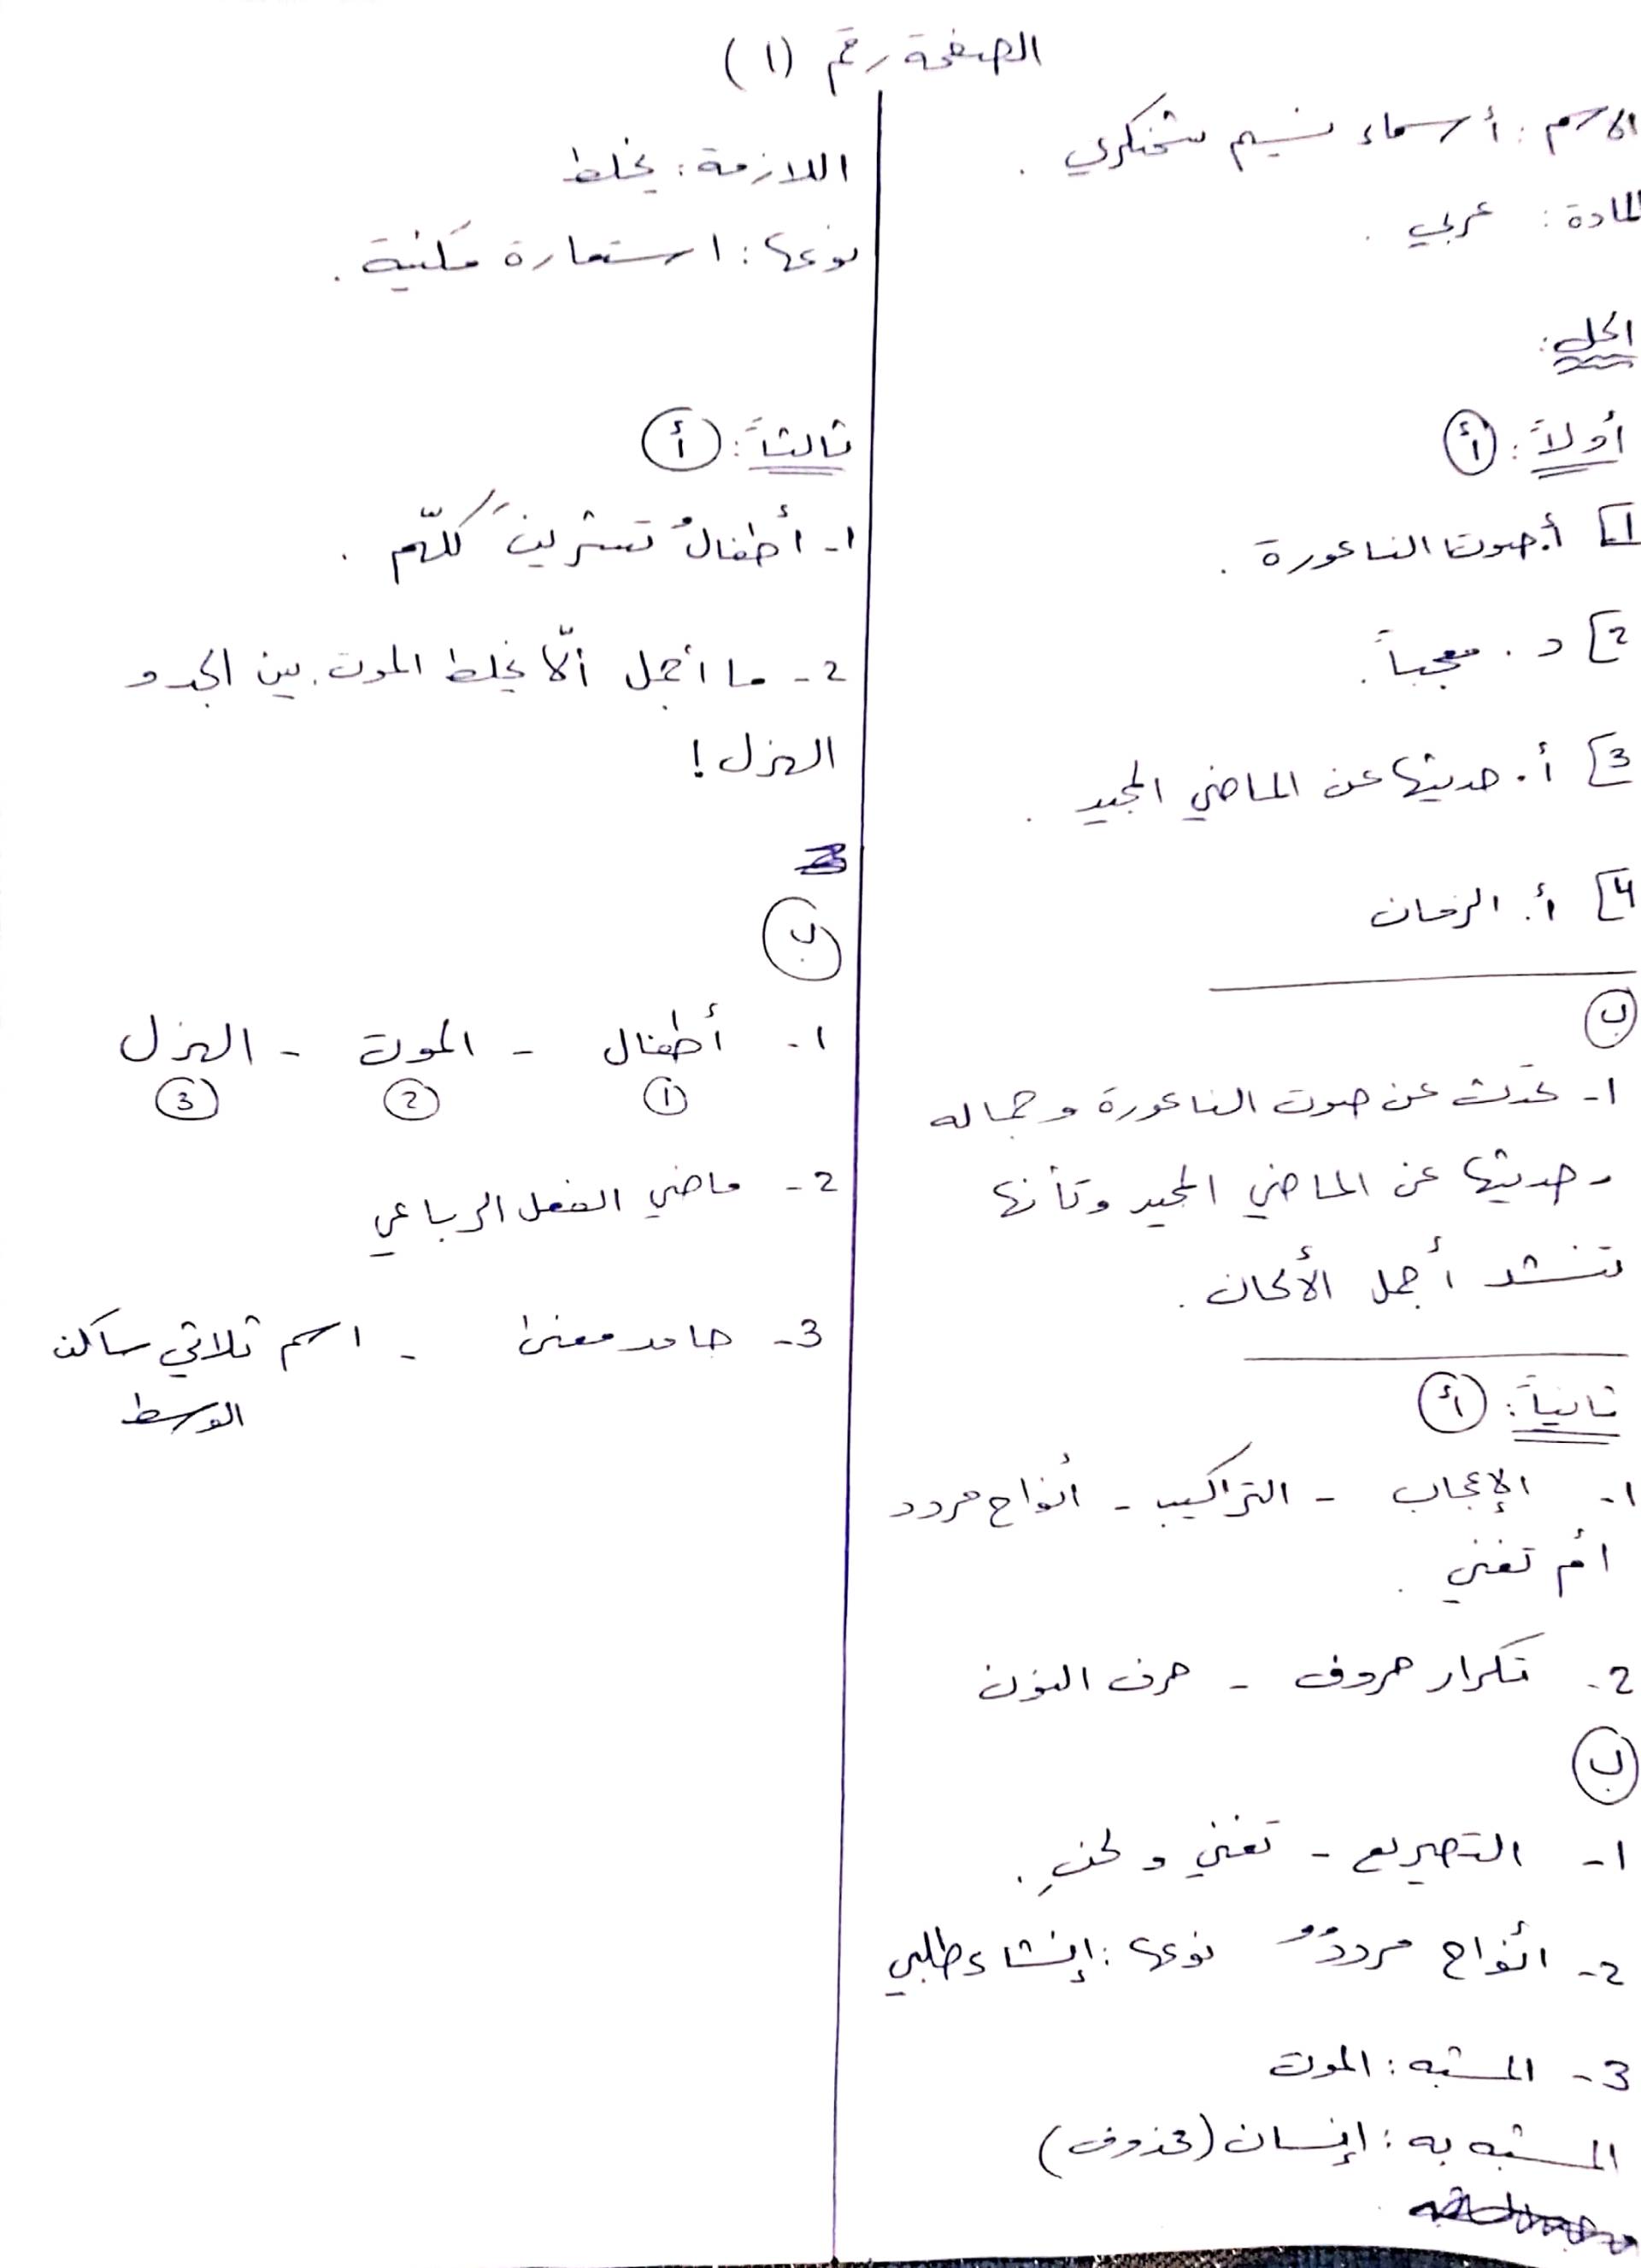 الصفحة رقم (١)
الاسم : أسماء نسيم شخنكري .
المادة : عربي .
الحل :
أولاً : أ
1 أ. صوت الناعورة .
2 د . معجباً .
3 أ . حديثها عن الماضي المجيد .
4 أ . الزمان
ب
١- تحدّث عن صوت الناعورة و جماله
و حديثها عن الماضي المجيد وكأنها
تنشد أجمل الألحان .
ثانياً : أ
١- الإعجاب - التراكيب - أنواح مردد
أم تغني .
2- تكرار حروف - حرف النون
ب
١- التصريع - تغني و لحنِ .
2- أنواح مرددٌ نوعها : إنشاء طلبي
3- المشبه : الموت
المشبه به : إنسان (محذوف)
اللازمة : يخلط
نوعها : استعارة مكنية .
ثالثاً : أ
١- أطفالُ تشرينَ كلّهم .
2- ما أجمل ألّا يخلط الموت بين الجد و
الهزل !
ب
١- أطفال - الموت - الهزل
1 2 3
2- ماضي الفعل الرباعي
3- جامد معنى - اسم ثلاثي ساكن
الوسط